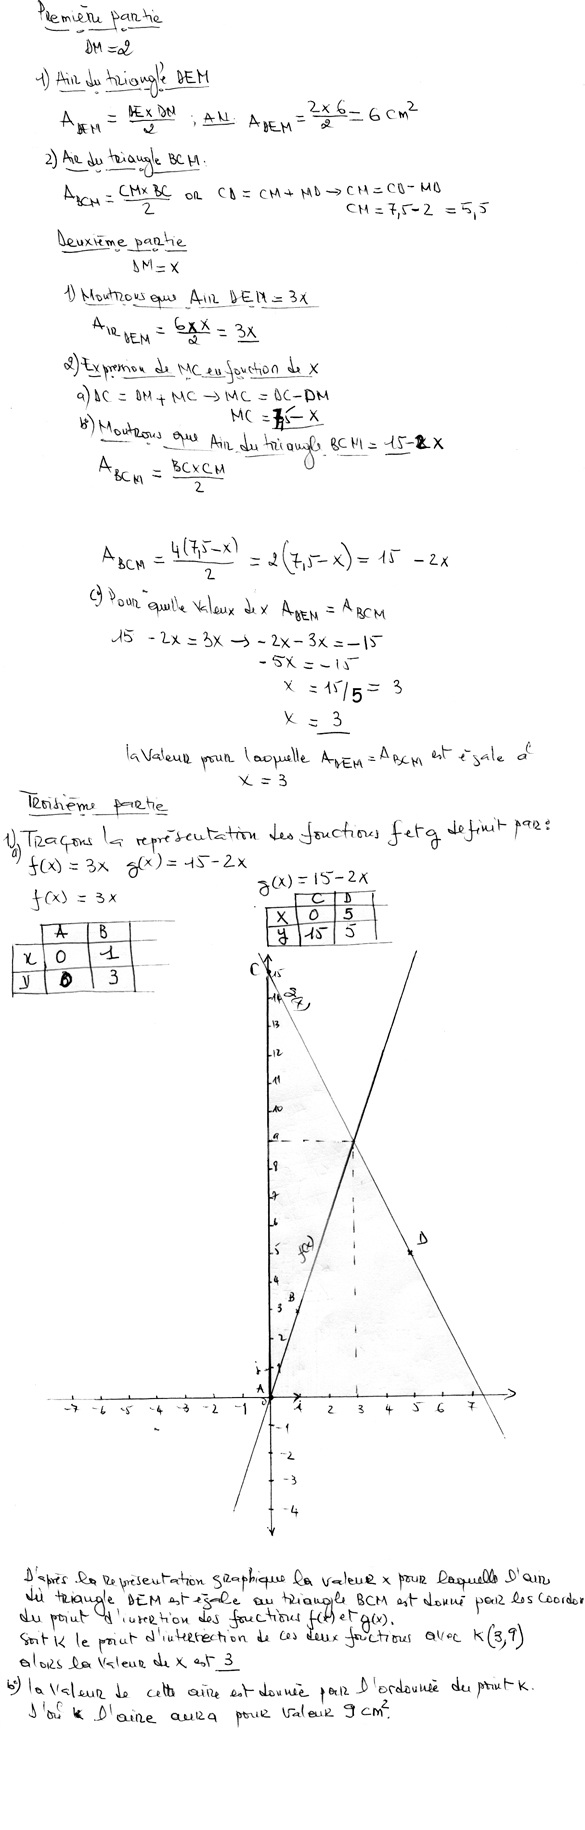 Première partie
DM = 2
1) Air du triangle DEM
A DEM = DE x DM / 2 ; AN. A DEM = 2 x 6 / 2 = 6 cm²
2) Air du triangle BCM.
A BCM = CM x BC / 2 or CD = CM + MD → CM = CD - MD
CM = 7,5 - 2 = 5,5
Deuxième partie
DM = x
1) Montrons que Air DEM = 3x
Air DEM = 6 x x / 2 = 3x
2) Expression de MC en fonction de x
a) DC = DM + MC → MC = DC - DM
MC = 7,5 - x
b) Montrons que Air du triangle BCM = 15 - 2x
A BCM = BC x CM / 2
A BCM = 4(7,5 - x) / 2 = 2(7,5 - x) = 15 - 2x
c) Pour quelle valeur de x A DEM = A BCM
15 - 2x = 3x → -2x - 3x = -15
-5x = -15
x = 15/5 = 3
x = 3
la valeur pour laquelle A DEM = A BCM est égale à
x = 3
Troisième partie
1) Traçons la représentation des fonctions f et g definit par :
a) f(x) = 3x g(x) = 15 - 2x
f(x) = 3x
A B
x 0 1
y 0 3
g(x) = 15 - 2x
C D
x 0 5
y 15 5
C 15
14
13
12
11
10
9
8
7
6
5 f(x) D
4
3 B
2
j 1
A
-7 -6 -5 -4 -3 -2 -1 0 i 2 3 4 5 6 7
-1
-2
-3
-4
D'après la représentation graphique la valeur x pour laquelle l'air
du triangle DEM est égale au triangle BCM est donné par les coordon
du point d'intertion des fonctions f(x) et g(x).
Soit K le point d'intersection de ces deux fonctions avec K(3,9)
alors la valeur de x est 3
b) la valeur de cette aire est donnée par l'ordonnée du point K.
D'où l'aire aura pour valeur 9 cm².